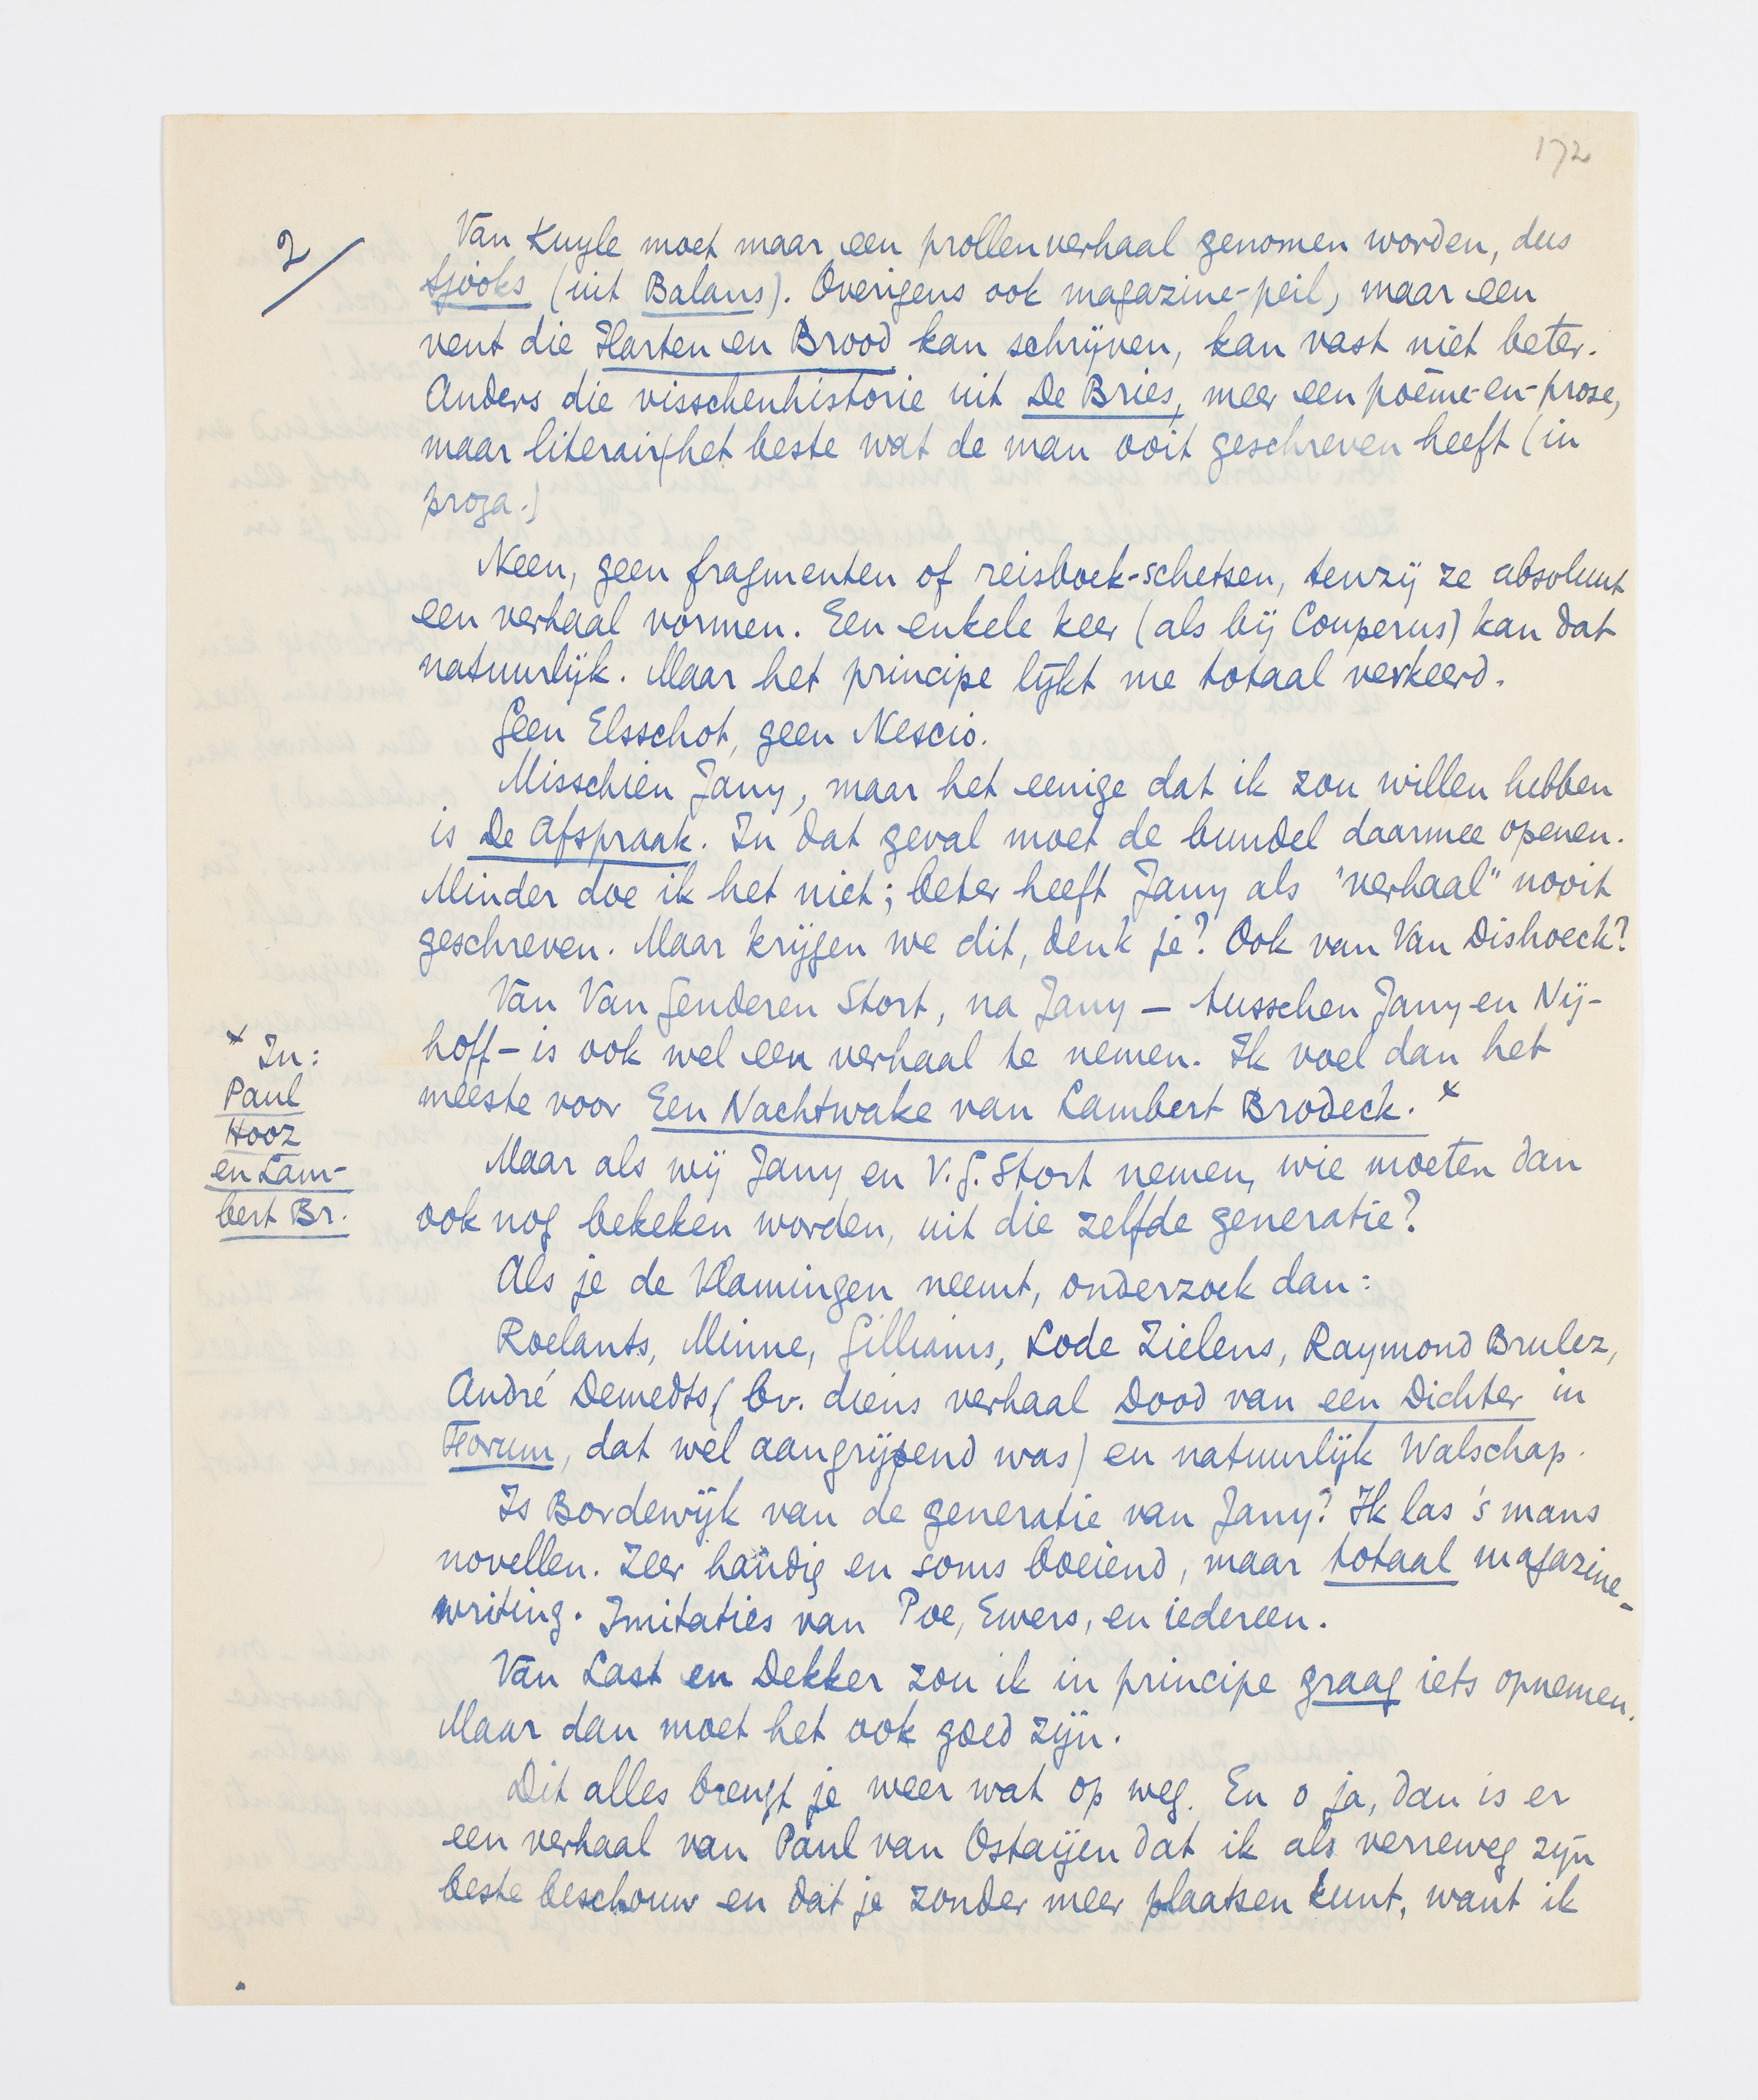 172
2/
Van Kuyle moet maar een prollenverhaal genomen worden, dus
Sjooks (uit Balans). Overigens ook magazine-peil, maar een
vent die Harten en Brood kan schrijven, kan vast niet beter.
Anders die visschenhistorie uit De Bries, meer een poème-en-prose,
maar literair het beste wat de man ooit geschreven heeft (in
proza.)
Neen, geen fragmenten of reisboek-schetsen, tenzij ze absoluut
een verhaal vormen. Een enkele keer (als bij Couperus) kan dat
natuurlijk. Maar het principe lijkt me totaal verkeerd.
Geen Elsschot, geen Nescio.
Misschien Jany, maar het eenige dat ik zou willen hebben
is De Afspraak. In dat geval moet de bundel daarmee openen.
Minder doe ik het niet; beter heeft Jany als "verhaal" nooit
geschreven. Maar krijgen we dit, denk je? Ook van Van Dishoeck?
Van Van Genderen Stort, na Jany – tusschen Jany en Nij-
hoff – is ook wel een verhaal te nemen. Ik voel dan het
meeste voor Een Nachtwake van Lambert Brodeck. x
x In:
Paul
Hooz
en Lam-
bert Br.
Maar als wij Jany en V.G. Stort nemen, wie moeten dan
ook nog bekeken worden, uit die zelfde generatie?
Als je de Vlamingen neemt, onderzoek dan:
Roelants, Minne, Gilliams, Lode Zielens, Raymond Brulez,
André Demedts (bv. diens verhaal Dood van een Dichter in
Forum, dat wel aangrijpend was) en natuurlijk Walschap.
Is Bordewijk van de generatie van Jany? Ik las 's mans
novellen. Zeer handig en soms boeiend, maar totaal magazine-
writing. Imitaties van Poe, Ewers, en iedereen.
Van Last en Dekker zou ik in principe graag iets opnemen.
Maar dan moet het ook goed zijn.
Dit alles brengt je weer wat op weg. En o ja, dan is er
een verhaal van Paul van Ostaijen dat ik als verreweg zijn
beste beschouw en dat je zonder meer plaatsen kunt, want ik